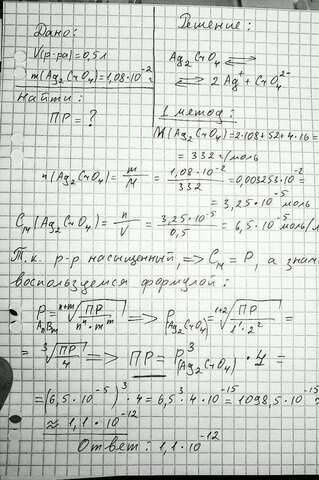 Дано:
V(р-ра)=0,5л
m(Ag₂CrO₄)=1,08·10⁻²г
Найти:
ПР = ?
Решение:
Ag₂CrO₄ ⇌
⇌ 2Ag⁺ + CrO₄²⁻
1 метод:
M(Ag₂CrO₄)=2·108+52+4·16=
= 332 г/моль
n(Ag₂CrO₄)= m/M = 1,08·10⁻²/332 = 0,003253·10⁻² =
= 3,25·10⁻⁵ моль
Cм(Ag₂CrO₄)= n/V = 3,25·10⁻⁵/0,5 = 6,5·10⁻⁵ моль/л
Т.к. р-р насыщенный, => Cм = P, а знач
воспользуемся формулой:
P AₙBₘ = ⁿ⁺ᵐ√(ПР/nⁿ·mᵐ) => P(Ag₂CrO₄) = ¹⁺²√(ПР/1¹·2²) =
= ³√(ПР/4) => ПР = P³(Ag₂CrO₄) · 4 =
=(6,5·10⁻⁵)³·4=6,5³·4·10⁻¹⁵=1098,5·10⁻¹⁵
≈ 1,1·10⁻¹²
Ответ: 1,1·10⁻¹²